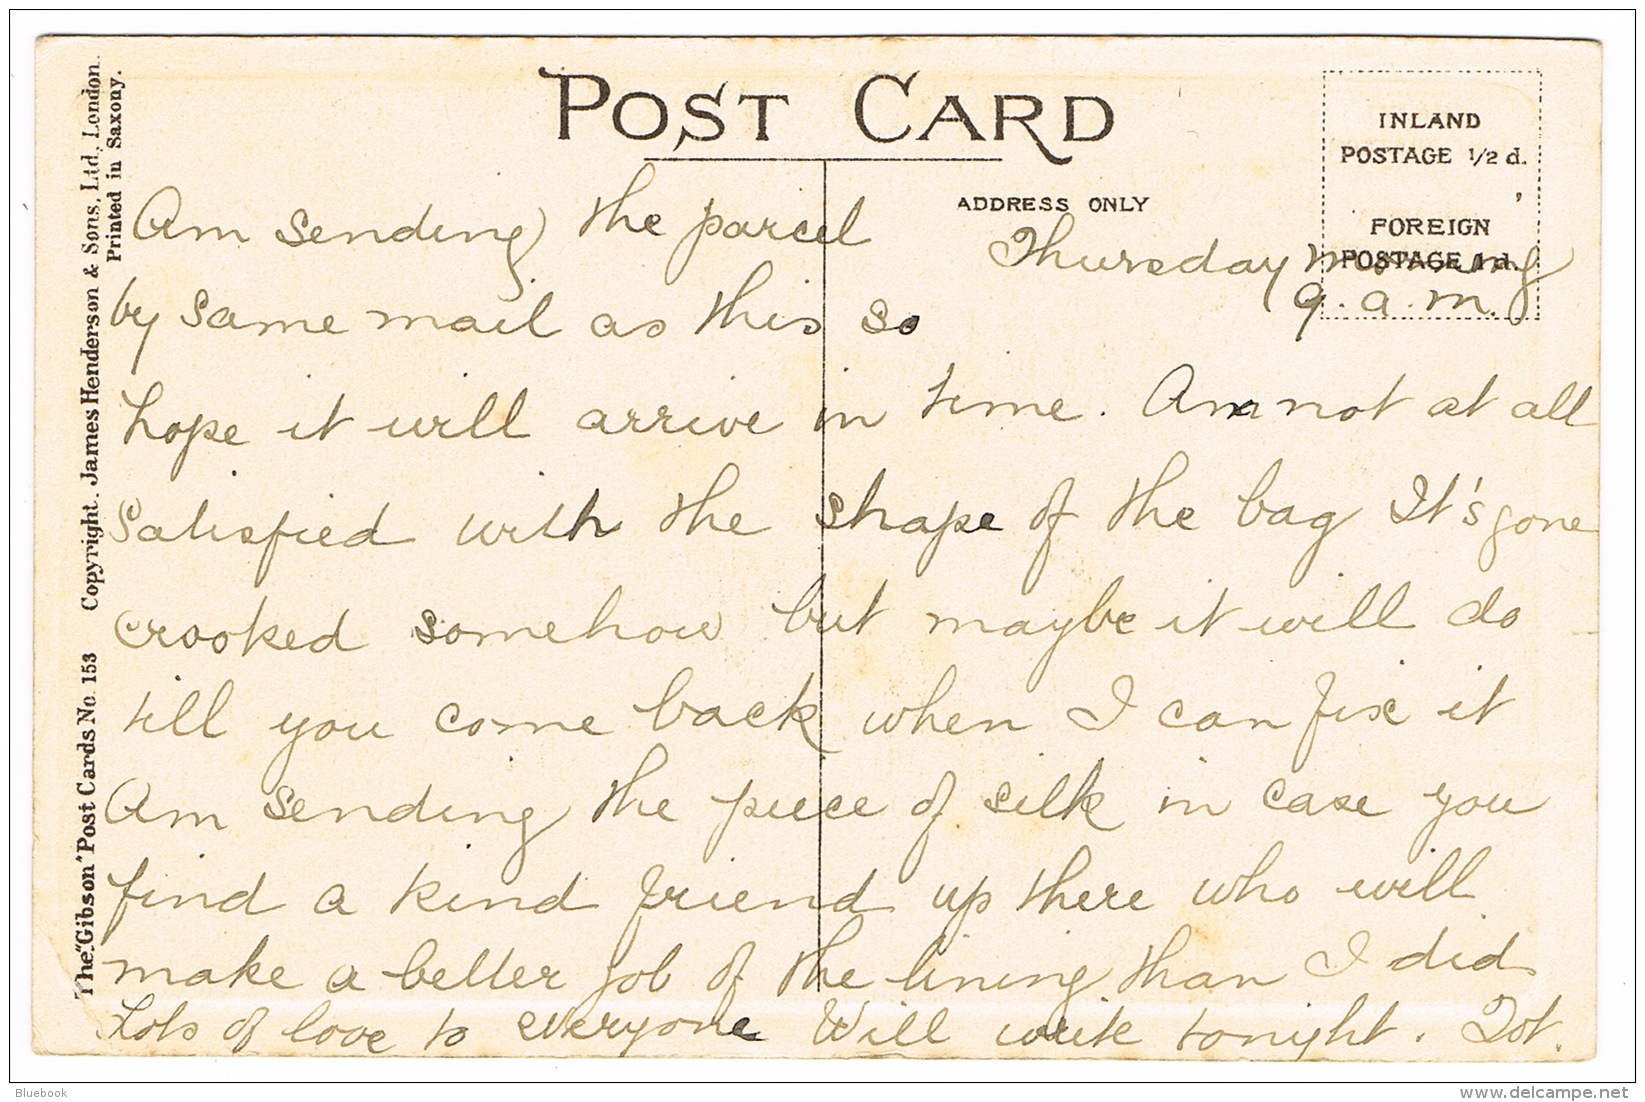 POST CARD
INLAND
POSTAGE 1/2 d.
FOREIGN
POSTAGE 1 d.
ADDRESS ONLY
The "Gibson" Post Cards No. 153 Copyright. James Henderson & Sons, Ltd., London.
Printed in Saxony.
Thursday morning
9. a. m.
Am sending the parcel
by same mail as this so
hope it will arrive in time. Am not at all
satisfied with the shape of the bag It's gone
crooked somehow but maybe it will do
till you come back when I can fix it
Am sending the piece of silk in case you
find a kind friend up there who will
make a better job of the lining than I did
Lots of love to everyone Will write tonight. Dot.
Bluebook
delcampe.net